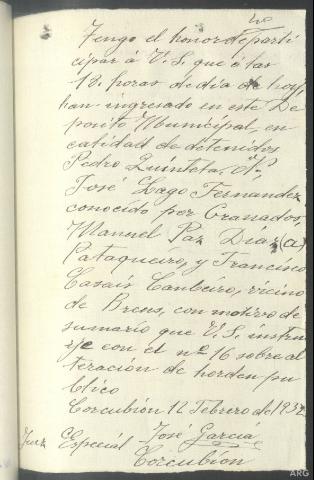 Tengo el honor de parti
cipar á V. S. que á las
18. horas de dia de hoy,
han ingresado en este De
posito Municipal, en
calidad de detenidos
Pedro Quintela,
José Lago Fernandez
conocido por Granados,
Manuel Paz Diaz (a)
Pataqueiro, y Francisco
Casais Canbeiro, vicino
de Brens, con motivo de
sumario que V. S. instru
ye con el nº 16 sobre al
teración de horden pu
blico
Corcubión 12 Febrero de 1932
José Garcia
Juez Especial
Corcubión
ARG